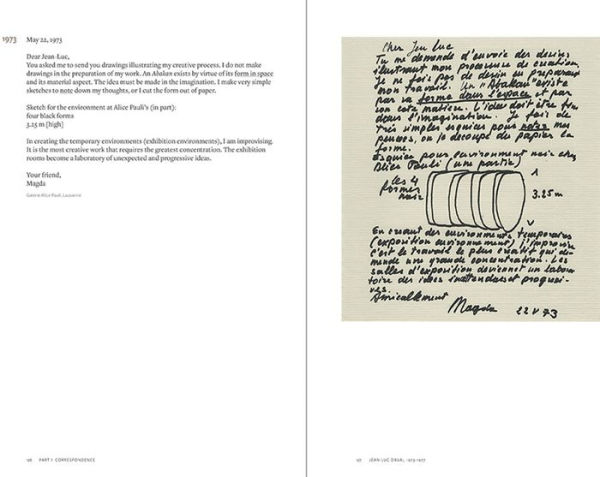 1973
May 22, 1973
Dear Jean-Luc,
You asked me to send you drawings illustrating my creative process. I do not make
drawings in the preparation of my work. An Abakan exists by virtue of its form in space
and its material aspect. The idea must be made in the imagination. I make very simple
sketches to note down my thoughts, or I cut the form out of paper.
Sketch for the environment at Alice Pauli's (in part):
four black forms
3.25 m [high]
In creating the temporary environments (exhibition-environments), I am improvising.
It is the most creative work that requires the greatest concentration. The exhibition
rooms become a laboratory of unexpected and progressive ideas.
Your friend,
Magda
Galerie Alice Pauli, Lausanne
PART I: CORRESPONDENCE
Cher Jeu Luc
Tu me demande d'envoie des desins
illustrant mon processuse de creation.
Je ne fais pas de desin en preparant
mon travail. Un "Abakan" existe
par sa forme dans l'espace et par
son cote matière. L'idee doit être
dans l'imagination. Je fais de
très simples esquises pour notes mes
pensees, on je decoupe du papier la
forme.
Esquise pour environment noir chez
Alice Pauli (une partie)
les 4
formes
noir
3.25 m
En creant des environments temporaires
(exposition environment) j'improvise
c'est le travail le plus creatif qui de-
mande une grande concentration. Les
salles d'exposition deviennet un labora
toire des idees inattendues et progresi-
ves.
Amicallement
Magda 22 V 73
JEAN-LUC DAVAL, 1973-1977